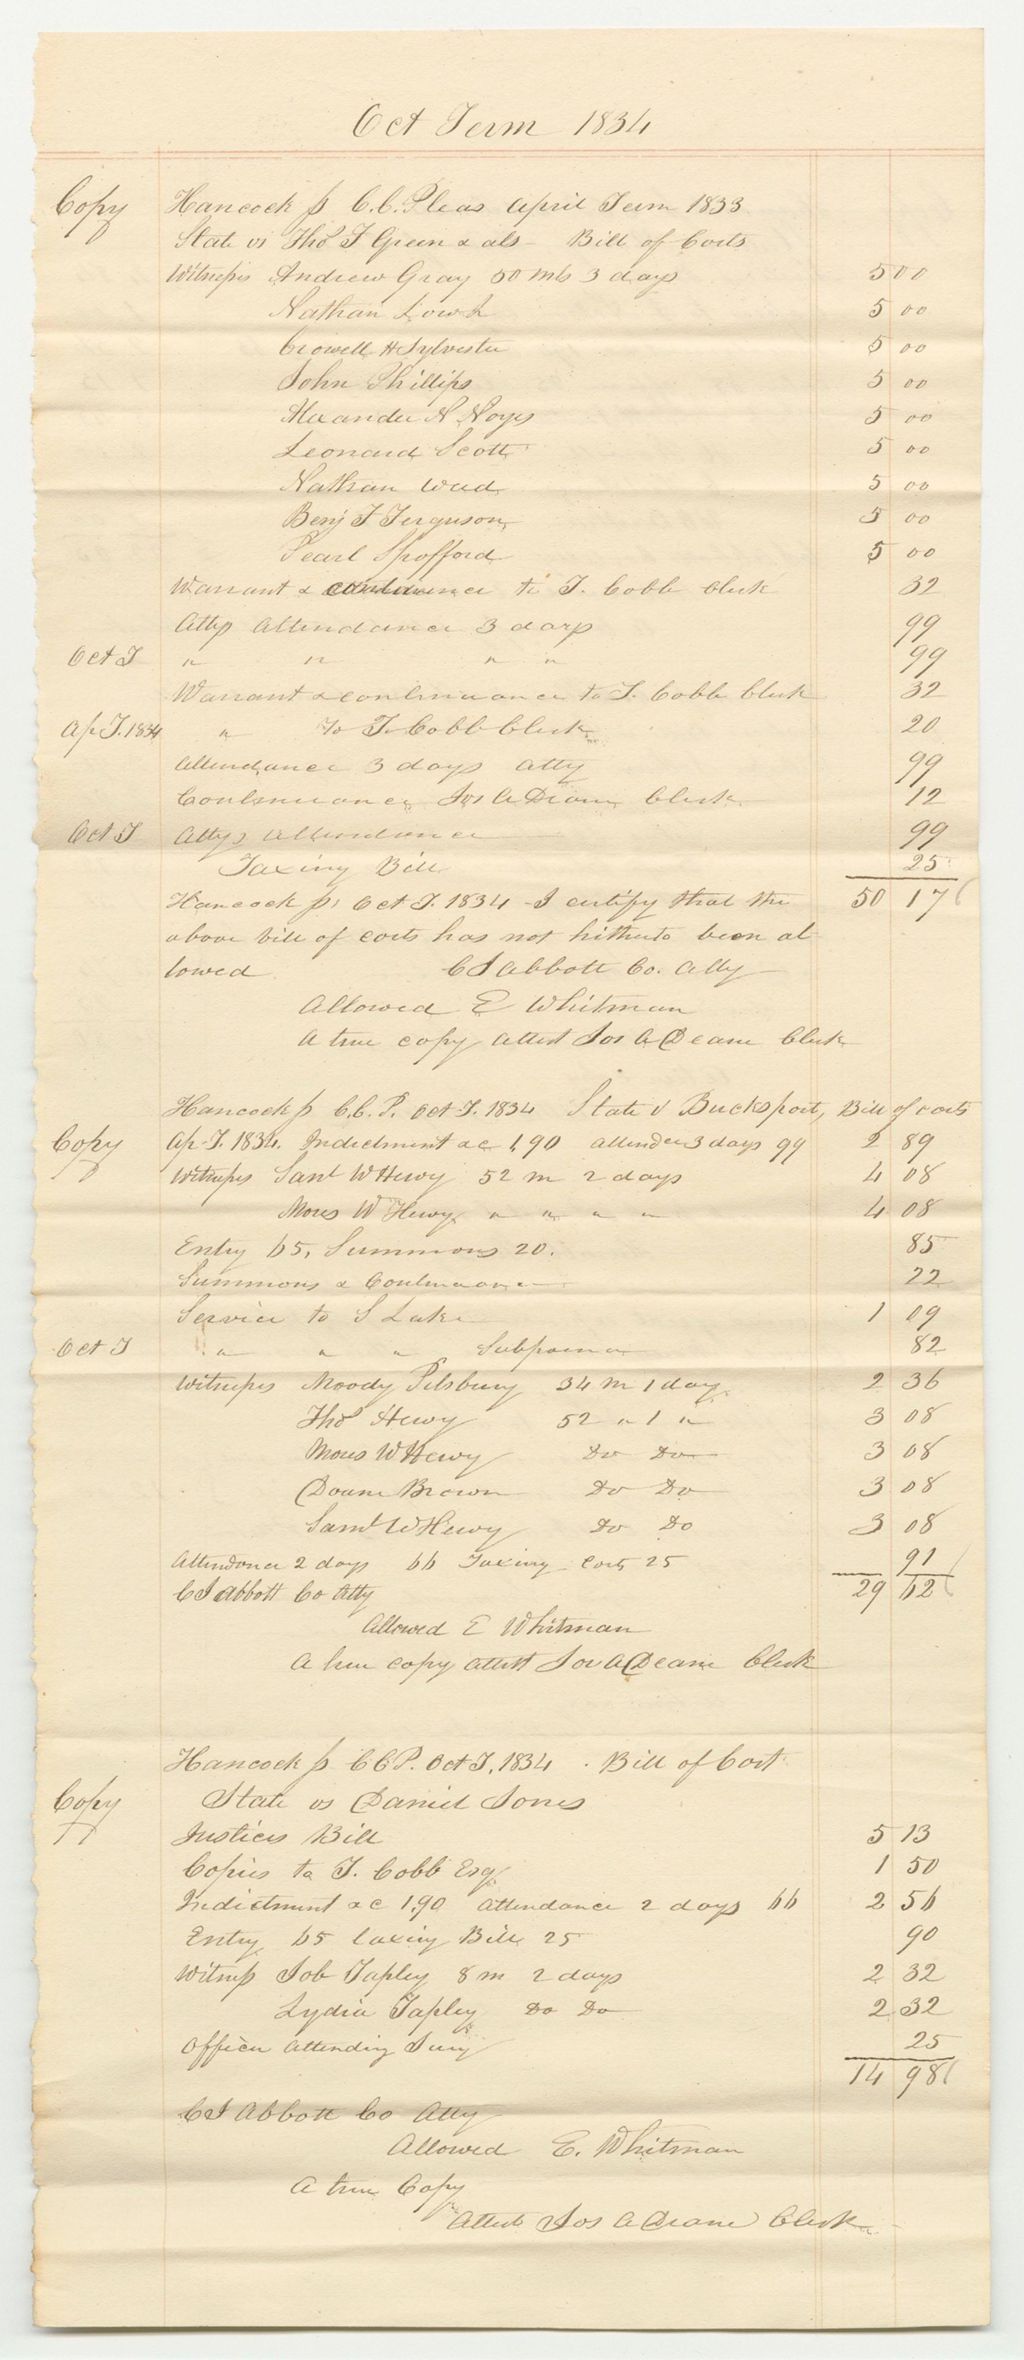 Oct Term 1834
Copy Hancock ss C.C. Pleas April Term 1833
State vs Thos F Green & als - Bill of Costs
Witnesses Andrew Gray 50 mls 3 days 5 00
Nathan Low 5 00
Crowell H Sylvester 5 00
John Phillips 5 00
Alexander N Noyes 5 00
Leonard Scott 5 00
Nathan Weed 5 00
Benj F Ferguson 5 00
Pearl Spofford 5 00
Warrant & continuance to T. Cobb Clerk 32
Attys Attendance 3 days 99
Oct T " " " " 99
Warrant & continuance to T. Cobb Clerk 32
Ap T. 1834 " To T. Cobb Clerk 20
Attendance 3 days Atty 99
Continuance Jos A Deane Clerk 12
Oct T Attys Attendance 99
Taxing Bill 25
Hancock ss, Oct T. 1834 - I certify that the 50 17
above bill of costs has not hitherto been al
lowed C J Abbott Co. Atty
Allowed E Whitman
A true copy attest Jos A Deane Clerk
Hancock ss C.C.P. Oct T. 1834 State v Bucksport, Bill of costs
Copy Ap T. 1834. Indictment &c 1,90 attendce 3 days 99 2 89
Witnesses Saml W Hewy 52 m 2 days 4 08
Moses W Hewy " " " " 4 08
Entry 65, Summons 20. 85
Summons & Continuance 22
Service to S Lake 1 09
Oct T " " " Subpoena 82
Witnesses Moody Pilsbury 34 m 1 day 2 36
Thos Hewy 52 " 1 " 3 08
Moses W Hewy Do Do 3 08
Doane Brown Do Do 3 08
Saml W Hewy Do Do 3 08
Attendance 2 days 66 Taxing Costs 25 91
C J Abbott Co Atty 29 62
Allowed E Whitman
A true copy attest Jos A Deane Clerk
Hancock ss C C P. Oct T, 1834 . Bill of Cost
Copy State vs Daniel Jones
Justices Bill 5 13
Copies to T. Cobb Esq. 1 50
Indictment &c 1.90 attendance 2 days 66 2 56
Entry 65 taxing Bill 25 90
Witness Job Tapley 8 m 2 days 2 32
Lydia Tapley Do Do 2 32
Officer attending Jury 25
14 98
C J Abbott Co Atty
Allowed E. Whitman
A true Copy
Attest Jos A Deane Clerk